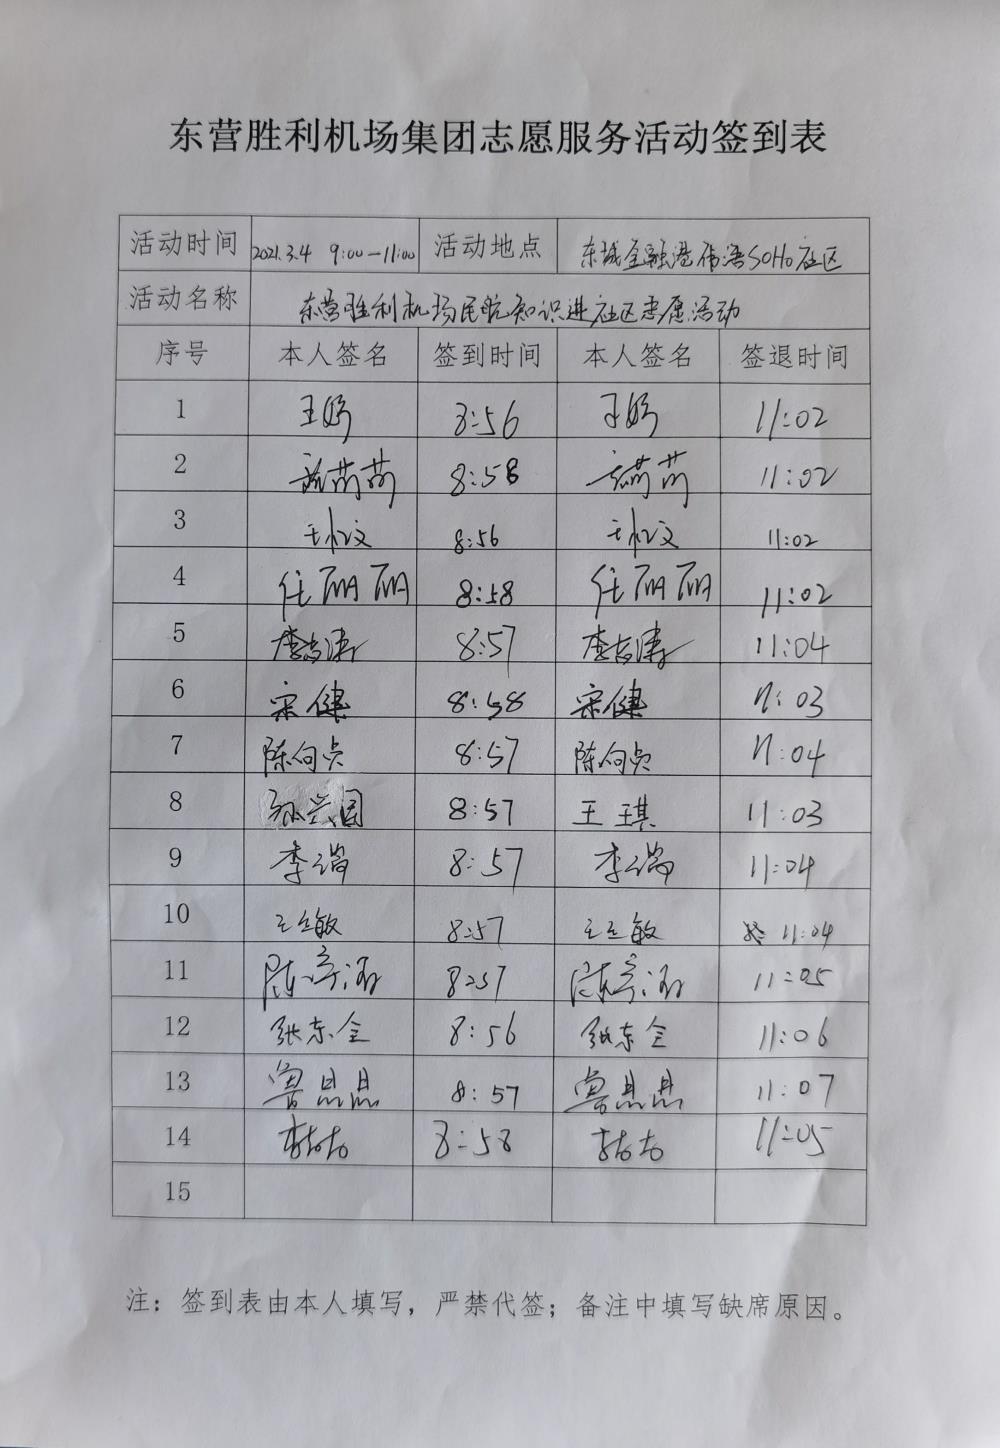 东营胜利机场集团志愿服务活动签到表
活动时间 2021.3.4 9:00—11:00 活动地点 东城金融港伟浯SOHO社区
活动名称 东营胜利机场民航知识进社区志愿活动
序号 本人签名 签到时间 本人签名 签退时间
1 王婷 8:56 王婷 11:02
2 8:58 11:02
3 8:56 11:02
4 任丽丽 8:58 任丽丽 11:02
5 李志涛 8:57 李志涛 11:04
6 宋健 8:58 宋健 11:03
7 陈向贞 8:57 陈向贞 11:04
8 孙兴国 8:57 王琪 11:03
9 李瑞 8:57 李瑞 11:04
10 王立敏 8:57 王立敏 11:04
11 8:57 11:05
12 张东全 8:56 张东全 11:06
13 鲁思思 8:57 鲁思思 11:07
14 8:58 11:05
15
注：签到表由本人填写，严禁代签；备注中填写缺席原因。